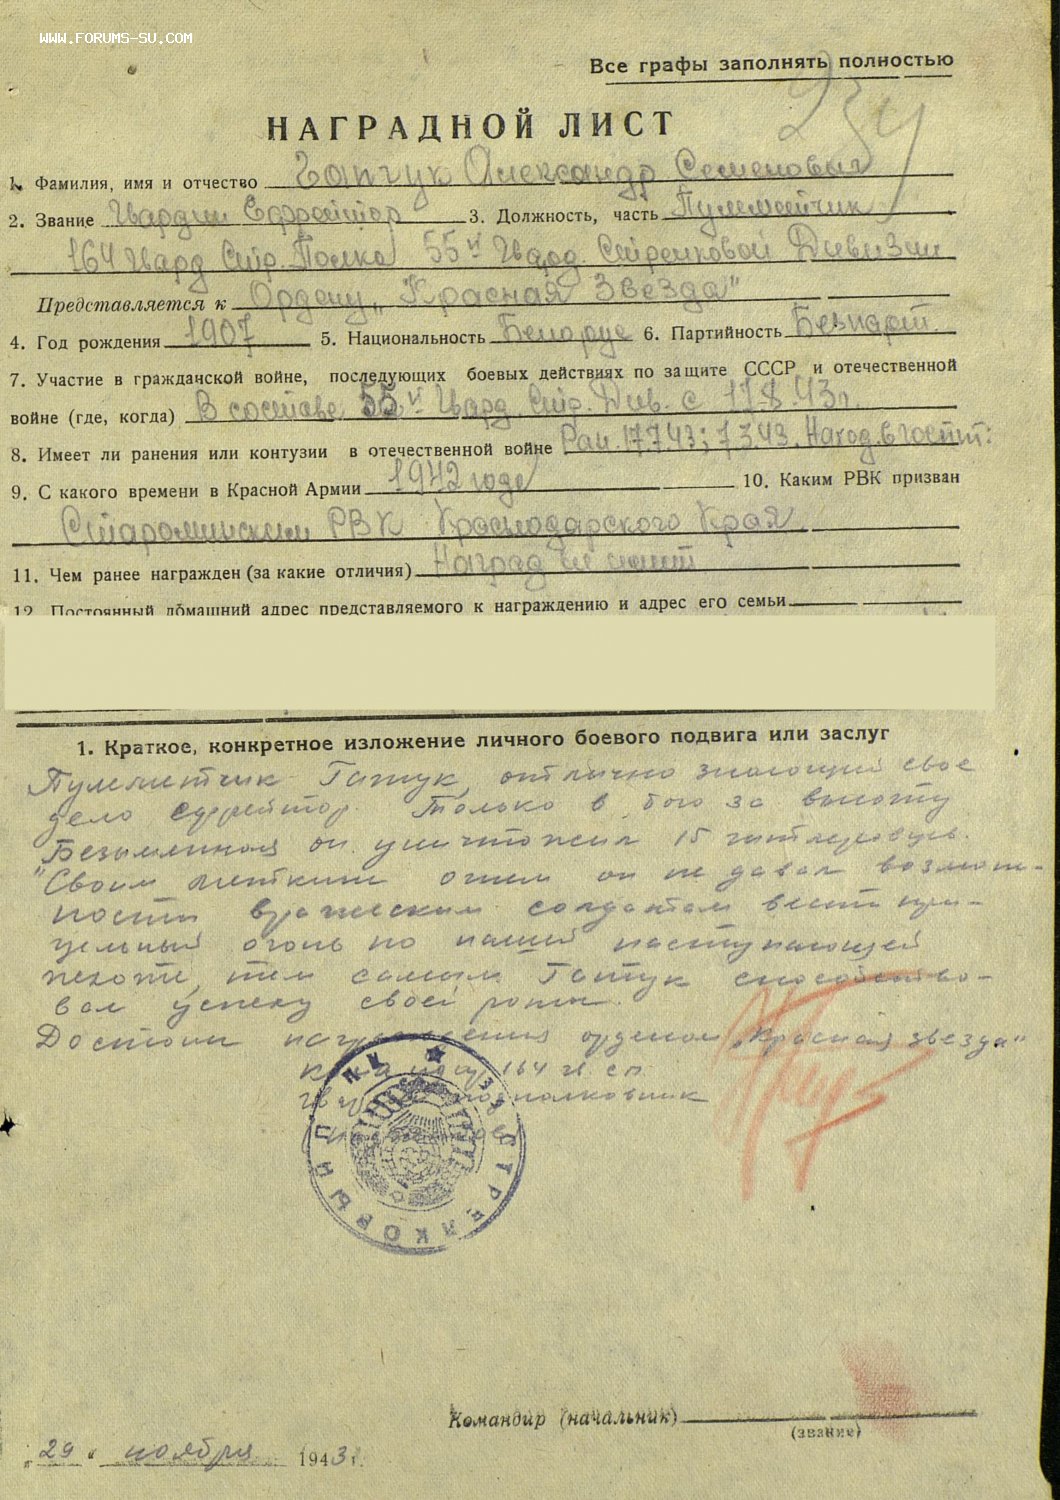 WWW.FORUMS-SU.COM
Все графы заполнять полностью
234
НАГРАДНОЙ ЛИСТ
1. Фамилия, имя и отчество Александр Семенович
2. Звание Гвардии Ефрейтор 3. Должность, часть Пулеметчик
164 Гвард Стр. Полка 55й Гвард. Стрелковой Дивизии
Представляется к Ордену „Красная Звезда"
4. Год рождения 1907 5. Национальность Белорус 6. Партийность Безпарт.
7. Участие в гражданской войне, последующих боевых действиях по защите СССР и отечественной
войне (где, когда) В составе 55й Гвард. Стр. Див. с 17.8.43г.
8. Имеет ли ранения или контузии в отечественной войне Ран. 17.7.43; 7.3.43. Наход. в госпит:
9. С какого времени в Красной Армии 1942 года 10. Каким РВК призван
Староминским РВК Краснодарского Края
11. Чем ранее награжден (за какие отличия) Наград не имеет
12. Постоянный домашний адрес представляемого к награждению и адрес его семьи
1. Краткое, конкретное изложение личного боевого подвига или заслуг
Пулеметчик Гатчук, отлично знающий свое
дело ефрейтор. Только в бою за высоту
"Безымянная он уничтожил 15 гитлеровцев.
Своим метким огнем он не давал возмож-
ности вражеским солдатам вести при-
цельный огонь по нашей наступающей
пехоте, тем самым Гатчук способство-
вал успеху своей роты.
Достоин награждения орденом „Красная звезда"
164 гв. сп
подполковник
СТРЕЛКОВЫЙ П
Командир (начальник)
(звание)
„29" ноября 1943 г.